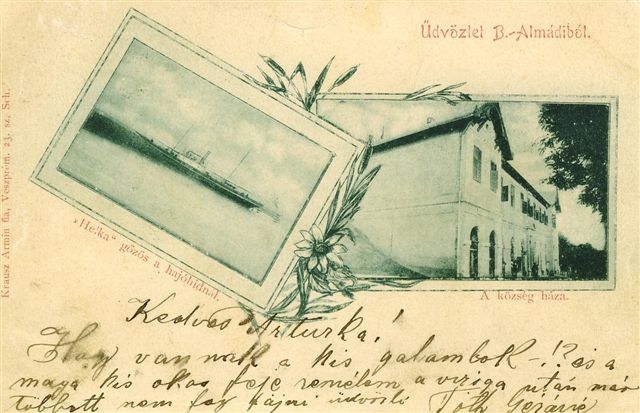 Üdvözlet B.-Almádiból.
Krausz Armin fia, Veszprém. 23. sz. Sch.
„Helka“ gőzös a hajóhídnál.
A község háza.
Kedves Arturka!
Hogy vannak a kis galambok -!? és a
maga kis okos feje remélem a viziga után már
többett nem fog fájni üdvözli Tóth Gézáné